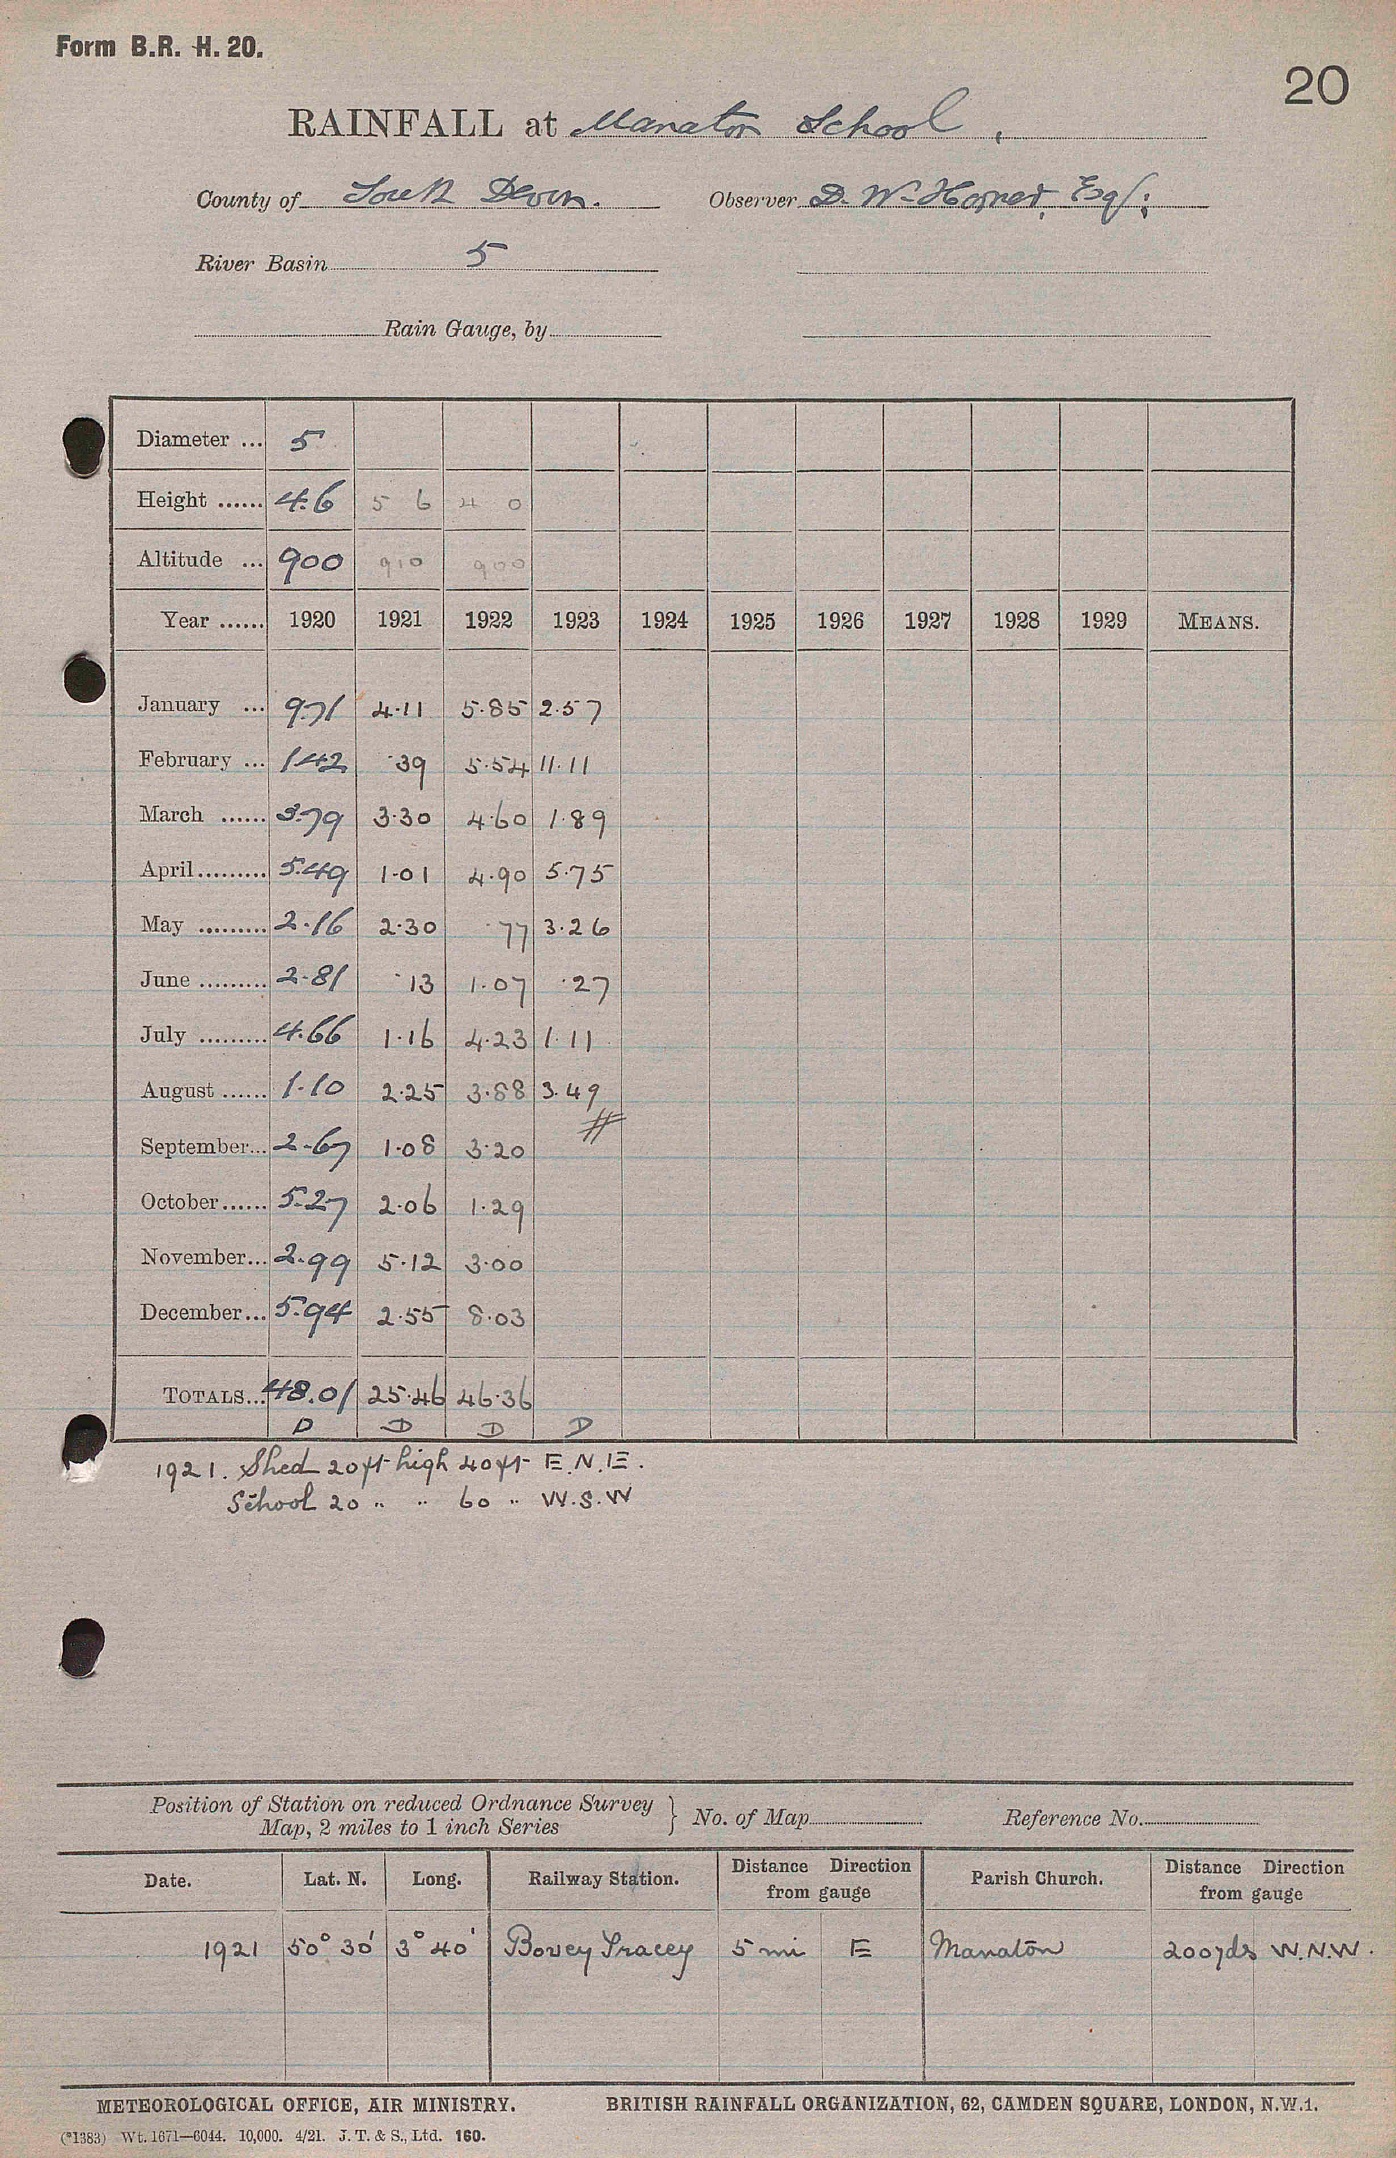 Form B.R. H. 20.
20
RAINFALL at Manaton School,
County of South Devon. Observer D. W. Horner, Esq;
River Basin 5
Rain Gauge, by
Diameter ... 5
Height ...... 4.6 5 6 4 0
Altitude ... 900 910 900
Year ...... 1920 1921 1922 1923 1924 1925 1926 1927 1928 1929 MEANS.
January ... 9.71 4.11 5.85 2.57
February ... 1.42 .39 5.54 11.11
March ...... 3.79 3.30 4.60 1.89
April......... 5.49 1.01 4.90 5.75
May ......... 2.16 2.30 .77 3.26
June ......... 2.81 .13 1.07 .27
July ......... 4.66 1.16 4.23 1.11
August ...... 1.10 2.25 3.88 3.49
September... 2.67 1.08 3.20
October...... 5.27 2.06 1.29
November... 2.99 5.12 3.00
December... 5.94 2.55 8.03
TOTALS... 48.01 25.46 46.36
D D D D
1921. Shed 20 ft high 40 ft E.N.E.
School 20 " " 60 " W.S.W
Position of Station on reduced Ordnance Survey
Map, 2 miles to 1 inch Series } No. of Map Reference No.
Date. Lat. N. Long. Railway Station. Distance Direction from gauge Parish Church. Distance Direction from gauge
1921 50° 30' 3° 40' Bovey Tracey 5 mi E Manaton 200 yds W.N.W.
METEOROLOGICAL OFFICE, AIR MINISTRY. BRITISH RAINFALL ORGANIZATION, 62, CAMDEN SQUARE, LONDON, N.W.1.
(*1383) Wt. 1671—6044. 10,000. 4/21. J. T. & S., Ltd. 160.